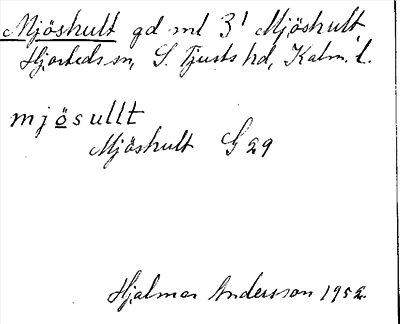 Mjöshult gd ml 3¹ Mjöshult,
Hjorteds sn, S. Tjusts hd, Kalm. l.
mjösullt
Mjöshult G 29
Hjalmar Andersson 1952